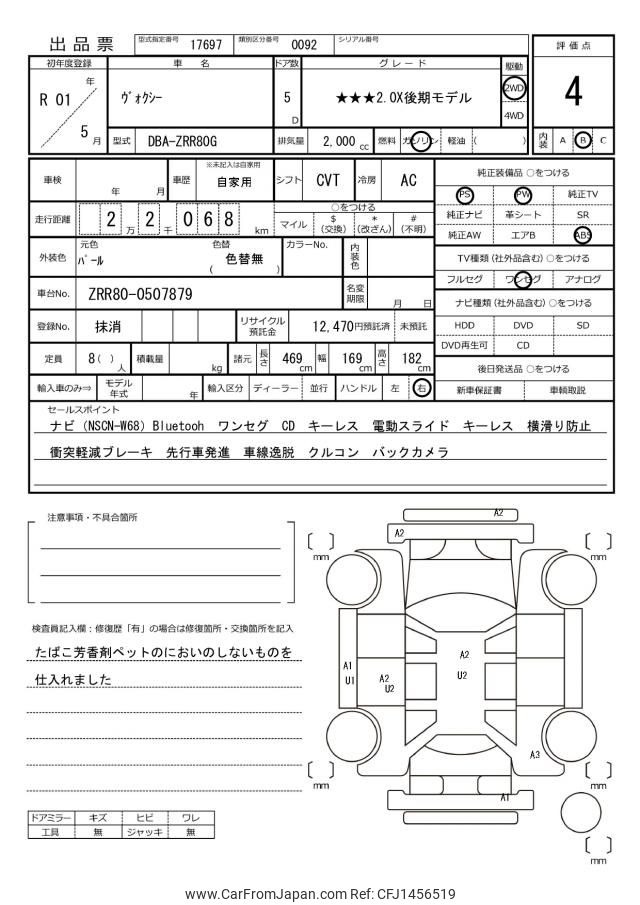 出品票 型式指定番号 17697 類別区分番号 0092 シリアル番号
評価点
4
内装 A B C
初年度登録 車名 ドア数 グレード 駆動
R 01 年 5 月
ヴォクシー
5 D
★★★2.0X後期モデル
2WD
4WD
型式 DBA-ZRR80G 排気量 2,000 cc 燃料 ガソリン 軽油 ( )
車検 年 月 車歴 ※未記入は自家用 自家用 シフト CVT 冷房 AC
走行距離 2 万 2 千 0 6 8 km
○をつける
マイル $ (交換) * (改ざん) # (不明)
外装色 元色 パール 色替 ( 色替無 ) カラーNo. 内装色
車台No. ZRR80-0507879 名変期限 月 日
登録No. 抹消 リサイクル預託金 12,470円預託済 未預託
定員 8 ( ) 人 積載量 kg 諸元 長さ 469 cm 幅 169 cm 高さ 182 cm
輸入車のみ⇒ モデル年式 年 輸入区分 ディーラー 並行 ハンドル 左 右
純正装備品 ○をつける
PS PW 純正TV
純正ナビ 革シート SR
純正AW エアB ABS
TV種類 (社外品含む) ○をつける
フルセグ ワンセグ アナログ
ナビ種類 (社外品含む) ○をつける
HDD DVD SD
DVD再生可 CD
後日発送品 ○をつける
新車保証書 車輌取説
セールスポイント
ナビ (NSCN-W68) Bluetooh ワンセグ CD キーレス 電動スライド キーレス 横滑り防止
衝突軽減ブレーキ 先行車発進 車線逸脱 クルコン バックカメラ
注意事項・不具合箇所
検査員記入欄：修復歴「有」の場合は修復箇所・交換箇所を記入
たばこ芳香剤ペットのにおいのしないものを
仕入れました
ドアミラー キズ ヒビ ワレ
工具 無 ジャッキ 無
A2
A2
mm
mm
A1
U1
A2
U2
A2
U2
A3
mm
mm
A1
mm
www.CarFromJapan.com Ref: CFJ1456519